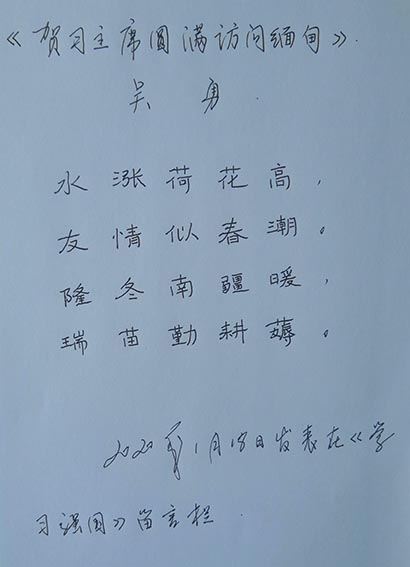 《贺习主席圆满访问缅甸》.
吴勇.
水涨荷花高，
友情似春潮。
隆冬南疆暖，
瑞苗勤耕薅。
2020年1月18日发表在《学
习强国》留言栏.